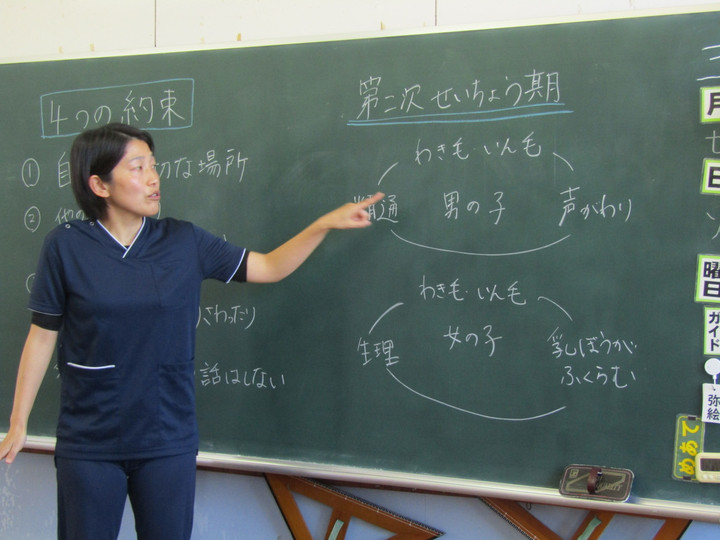 4つの約束
① 自 切な場所
② 他の
さわったり
話はしない
第二次せいちょう期
わき毛・いん毛
精通 男の子 声がわり
わき毛・いん毛
生理 女の子 乳ぼうが
ふくらむ
月
日
曜日
ガイド
弥
絵
めあて